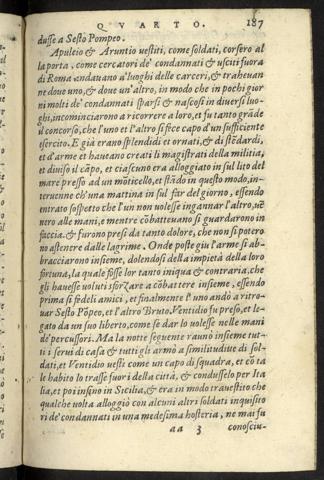 QVARTO. 187
dusse a Sesto Pompeo.
Apuleio & Aruntio uestiti, come soldati, corsero al
la porta, come cercatori de' condannati & usciti fuora
di Roma andauano a' luoghi delle carceri, & traheuan
ne doue uno, & doue un'altro, in modo che in pochi gior
ni molti de' condannati sparsi & nascosi in diuersi luo-
ghi, incominciarono a ricorrere a loro, et fu tanto grãde
il concorso, che l'uno et l'altro si fece capo d'un sufficiente
esercito. E già erano splendidi et ornati, & di stẽdardi,
et d'arme et haueano creati li magistrati della militia,
et diuiso il cãpo, et ciascuno era alloggiato in sul lito del
mare presso ad un mõticello, et stẽdo in questo modo, in-
teruenne ch'una mattina in sul far del giorno, essendo
entrato sospetto che l'un non uolesse ingannar l'altro, uẽ
nero alle mani, e mentre cõbatteuano si guardarono in
faccia. & furono presi da tanto dolore, che non si potero
no astenere dalle lagrime. Onde poste giu l'arme si ab-
bracciarono insieme, dolendosi della impietà della loro
fortuna, la quale fosse lor tanto iniqua & contraria, che
gli hauesse uoluti sforzare a cõbattere insieme, essendo
prima si fedeli amici, et finalmente l'uno andò a ritro-
uar Sesto Põpeo, et l'altro Bruto. Ventidio fu preso, et le-
gato da un suo liberto, come se dar lo uolesse nelle mani
de' percussori. Ma la notte seguente raunò insieme tut-
ti i serui di casa & tutti gli armò a similitudine di sol-
dati, et Ventidio uestì come un capo di squadra, et cõ ta
le habito lo trasse fuori della città, & condusselo per Ita
lia, et poi insino in Sicilia, & era in modo trauestito che
qualche uolta alloggiò con alcuni altri soldati inquisito
ri de' condannati in una medesima hosteria, ne mai fu
aa 3 conosciu-